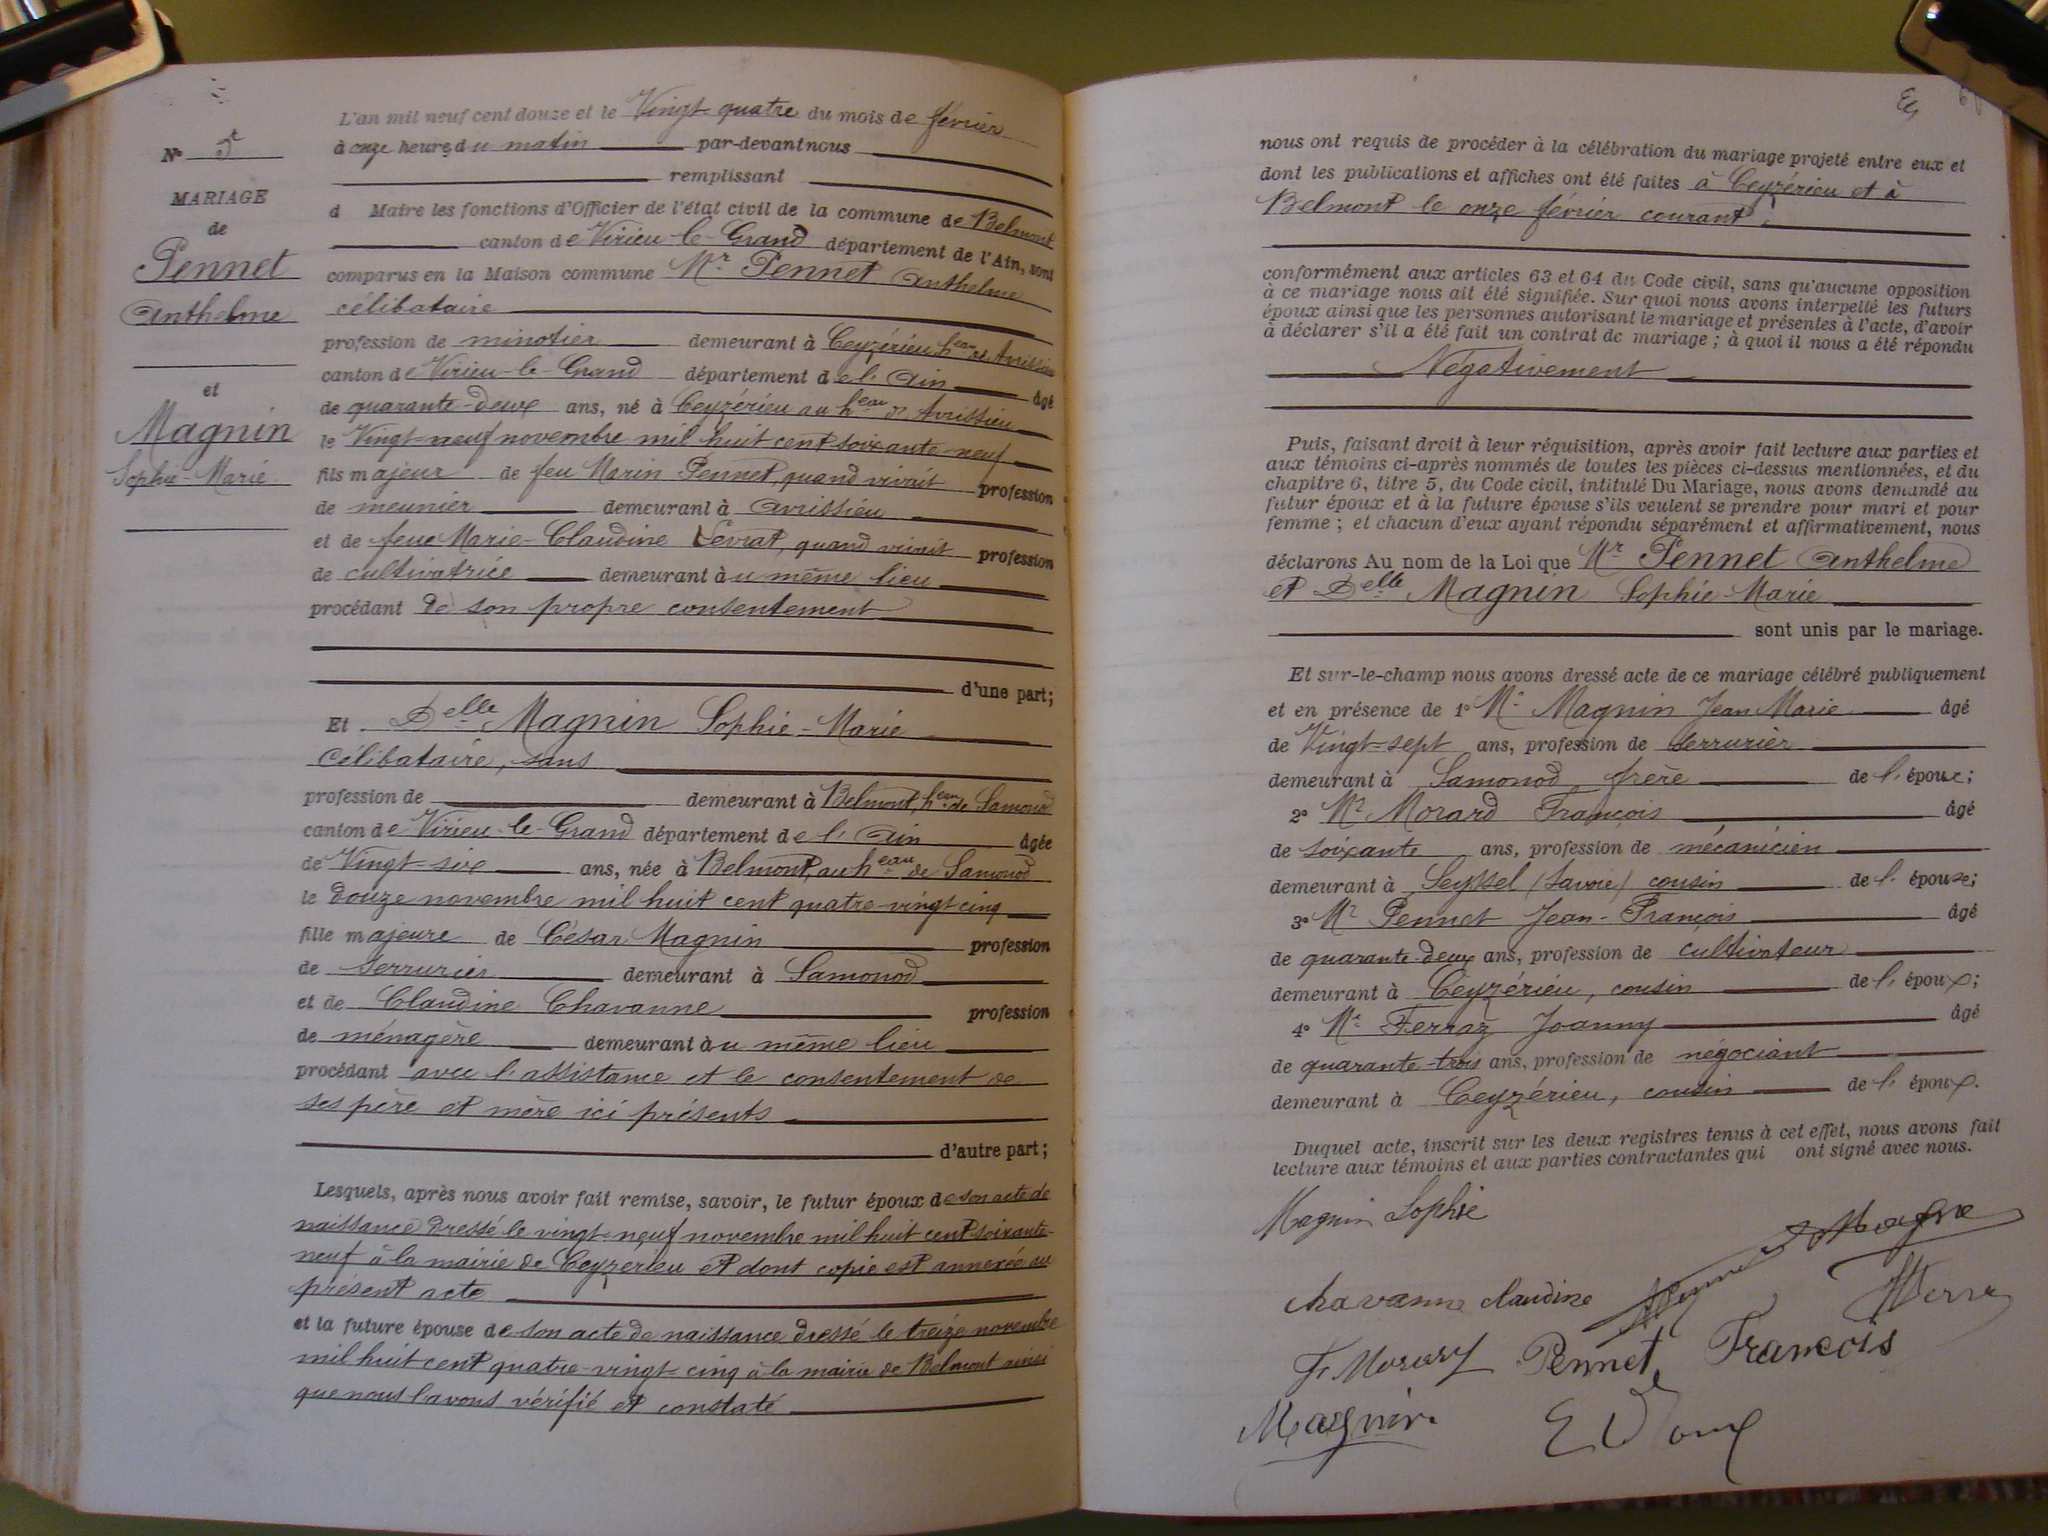 L'an mil neuf cent douze et le Vingt-quatre du mois de février
N° 5
à onze heures du matin par-devant nous
remplissant
MARIAGE
de
Pennet
Anthelme
et
Magnin
Sophie-Marie
d Maire les fonctions d'Officier de l'état civil de la commune de Belmont
canton de Virieu-le-Grand département de l'Ain, sont
comparus en la Maison commune Mr Pennet Anthelme
célibataire
profession de minotier demeurant à Ceyzérieu, heau d'Avrissieu
canton de Virieu-le-Grand département de l'Ain âgé
de quarante-deux ans, né à Ceyzérieu au heau d'Avrissieu
le Vingt-neuf novembre mil huit cent soixante-neuf
fils majeur de feu Marin Pennet, quand vivait profession
de meunier demeurant à Avrissieu
et de feue Marie-Claudine Levrat, quand vivait profession
de cultivatrice demeurant au même lieu
procédant de son propre consentement
d'une part;
Et Delle Magnin Sophie-Marie
célibataire, sans
profession de demeurant à Belmont, heau de Samonod
canton de Virieu-le-Grand département de l'Ain âgée
de Vingt-six ans, née à Belmont, au heau de Samonod
le douze novembre mil huit cent quatre-vingt cinq
fille majeure de César Magnin profession
de serrurier demeurant à Samonod
et de Claudine Chavanne profession
de ménagère demeurant au même lieu
procédant avec l'assistance et le consentement de
ses père et mère ici présents
d'autre part;
Lesquels, après nous avoir fait remise, savoir, le futur époux de son acte de
naissance dressé le vingt-neuf novembre mil huit cent soixante-
neuf à la mairie de Ceyzérieu et dont copie est annexée au
présent acte
et la future épouse de son acte de naissance dressé le treize novembre
mil huit cent quatre-vingt cinq à la mairie de Belmont ainsi
que nous l'avons vérifié et constaté
nous ont requis de procéder à la célébration du mariage projeté entre eux et
dont les publications et affiches ont été faites à Ceyzérieu et à
Belmont le onze février courant,
conformément aux articles 63 et 64 du Code civil, sans qu'aucune opposition
à ce mariage nous ait été signifiée. Sur quoi nous avons interpellé les futurs
époux ainsi que les personnes autorisant le mariage et présentes à l'acte, d'avoir
à déclarer s'il a été fait un contrat de mariage; à quoi il nous a été répondu
Négativement
Puis, faisant droit à leur réquisition, après avoir fait lecture aux parties et
aux témoins ci-après nommés de toutes les pièces ci-dessus mentionnées, et du
chapitre 6, titre 5, du Code civil, intitulé Du Mariage, nous avons demandé au
futur époux et à la future épouse s'ils veulent se prendre pour mari et pour
femme; et chacun d'eux ayant répondu séparément et affirmativement, nous
déclarons Au nom de la Loi que Mr Pennet Anthelme
et Delle Magnin Sophie-Marie
sont unis par le mariage.
Et sur-le-champ nous avons dressé acte de ce mariage célébré publiquement
et en présence de 1° Mr Magnin Jean Marie âgé
de Vingt-sept ans, profession de serrurier
demeurant à Samonod frère de l'épouse;
2° Mr Morard François âgé
de soixante ans, profession de mécanicien
demeurant à Seyssel (Savoie) cousin de l'épouse;
3° Mr Pennet Jean-François âgé
de quarante-deux ans, profession de cultivateur
demeurant à Ceyzérieu, cousin de l'époux;
4° Mr Ferraz Joanny âgé
de quarante-trois ans, profession de négociant
demeurant à Ceyzérieu, cousin de l'époux.
Duquel acte, inscrit sur les deux registres tenus à cet effet, nous avons fait
lecture aux témoins et aux parties contractantes qui ont signé avec nous.
Magnin Sophie
chavanne claudine
F. Morard Pennet François
Magnin